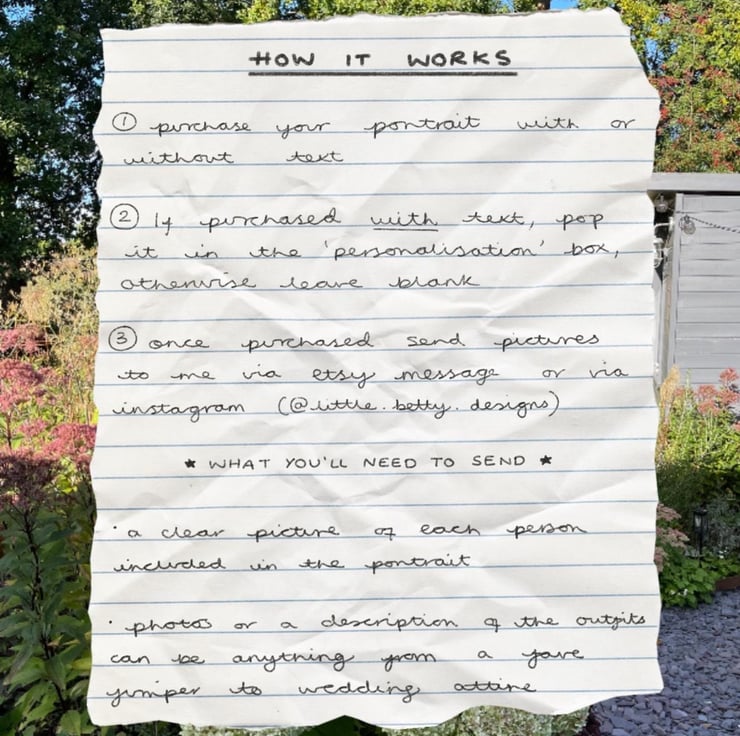 HOW IT WORKS
① purchase your portrait with or
without text
② If purchased with text, pop
it in the 'personalisation' box,
otherwise leave blank
③ once purchased send pictures
to me via etsy message or via
instagram (@little.betty.designs)
* WHAT YOU'LL NEED TO SEND *
· a clear picture of each person
included in the portrait
· photos or a description of the outfits
can be anything from a fave
jumper to wedding attire